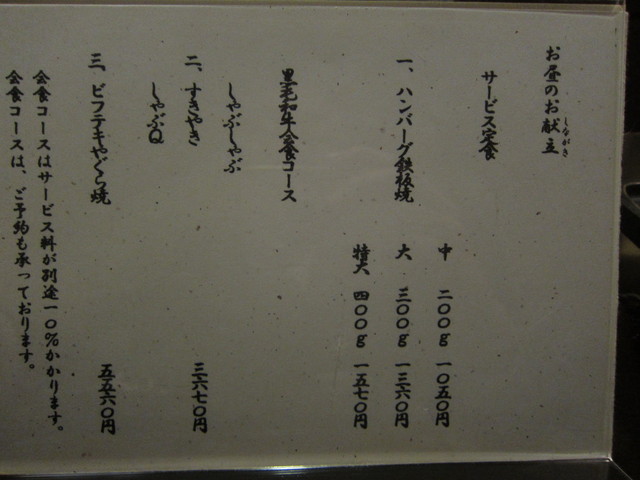 お昼のお献立
しながき
サービス定食
中 二〇〇g 一〇五〇円
一、ハンバーグ鉄板焼 大 三〇〇g 一三六〇円
特大 四〇〇g 一五七〇円
黒毛和牛会食コース
しゃぶしゃぶ
二、すきやき 三六七〇円
しゃぶQ
三、ビフテキやぐら焼 五五六〇円
会食コースはサービス料が別途一〇%かかります。
会食コースは、ご予約も承っております。